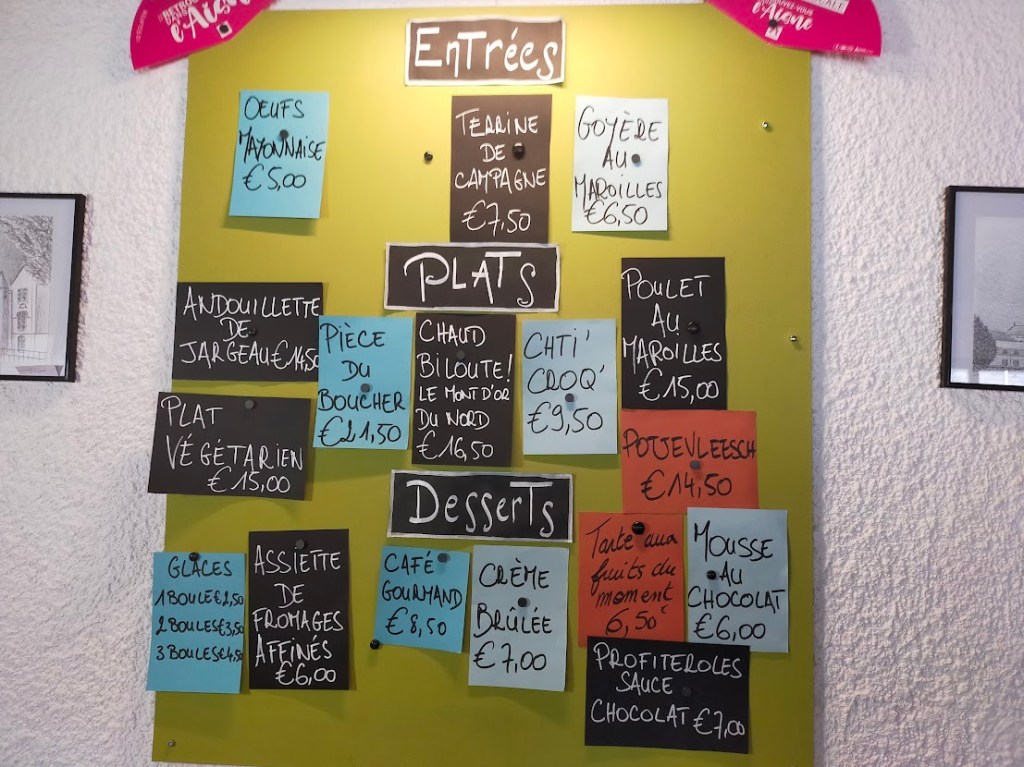 RETROUVEZ
l'Aisne
l'Aisne
EnTrées
OEUFS
MAYONNAISE
€5,00
TERRINE
DE
CAMPAGNE
€7,50
GOYÈRE
AU
MAROILLES
€6,50
PLATs
ANDOUILLETTE
DE
JARGEAU €14,50
PIÈCE
DU
BOUCHER
€21,50
CHAUD
BILOUTE!
LE MONT D'OR
DU NORD
€16,50
CHTI'
CROQ'
€9,50
POULET
AU
MAROILLES
€15,00
PLAT
VÉGÉTARIEN
€15,00
POTJEVLEESCH
€14,50
DesserTs
GLACES
1 BOULE €2,50
2 BOULES €3,50
3 BOULES €4,50
ASSIETTE
DE
FROMAGES
AFFINÉS
€6,00
CAFÉ
GOURMAND
€8,50
CRÈME
BRÛLÉE
€7,00
Tarte aux
fruits du
moment
6,50€
MOUSSE
AU
CHOCOLAT
€6,00
PROFITEROLES
SAUCE
CHOCOLAT €7,00